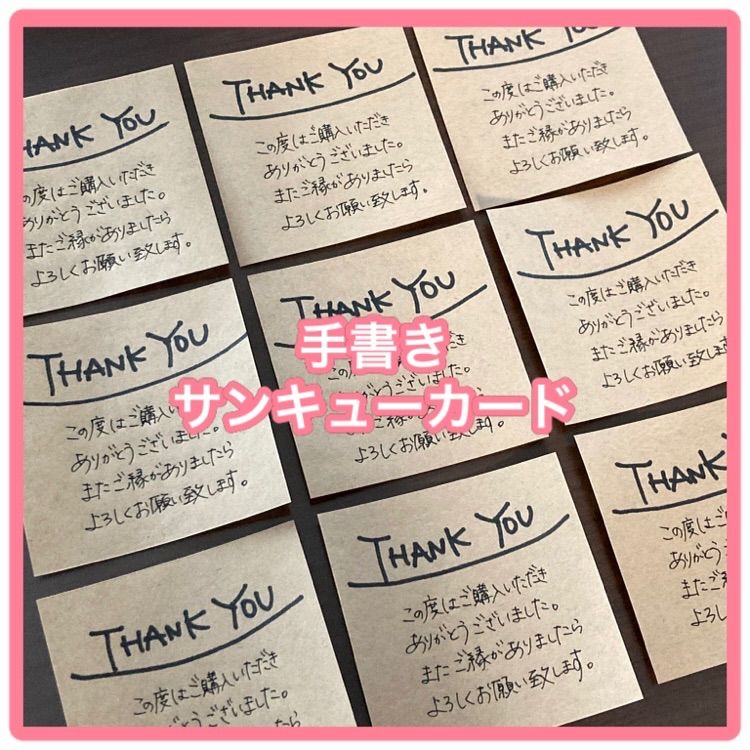 THANK YOU
この度はご購入いただき
ありがとうございました。
またご縁がありましたら
よろしくお願い致します。
THANK YOU
この度はご購入いただき
ありがとうございました。
またご縁がありましたら
よろしくお願い致します。
THANK YOU
この度はご購入いただき
ありがとうございました。
またご縁がありましたら
よろしくお願い致します。
THANK YOU
この度はご購入いただき
ありがとうございました。
またご縁がありましたら
よろしくお願い致します。
THANK YOU
手書き
サンキューカード
よろしくお願い致します。
THANK YOU
この度はご購入いただき
ありがとうございました。
またご縁がありましたら
よろしくお願い致します。
THANK YOU
この度はご購入いただき
ありがとうございました。
またご縁がありましたら
THANK YOU
この度はご購入いただき
ありがとうございました。
またご縁がありましたら
よろしくお願い致します。
THANK
この度はご
ありがとう
またご
よろし